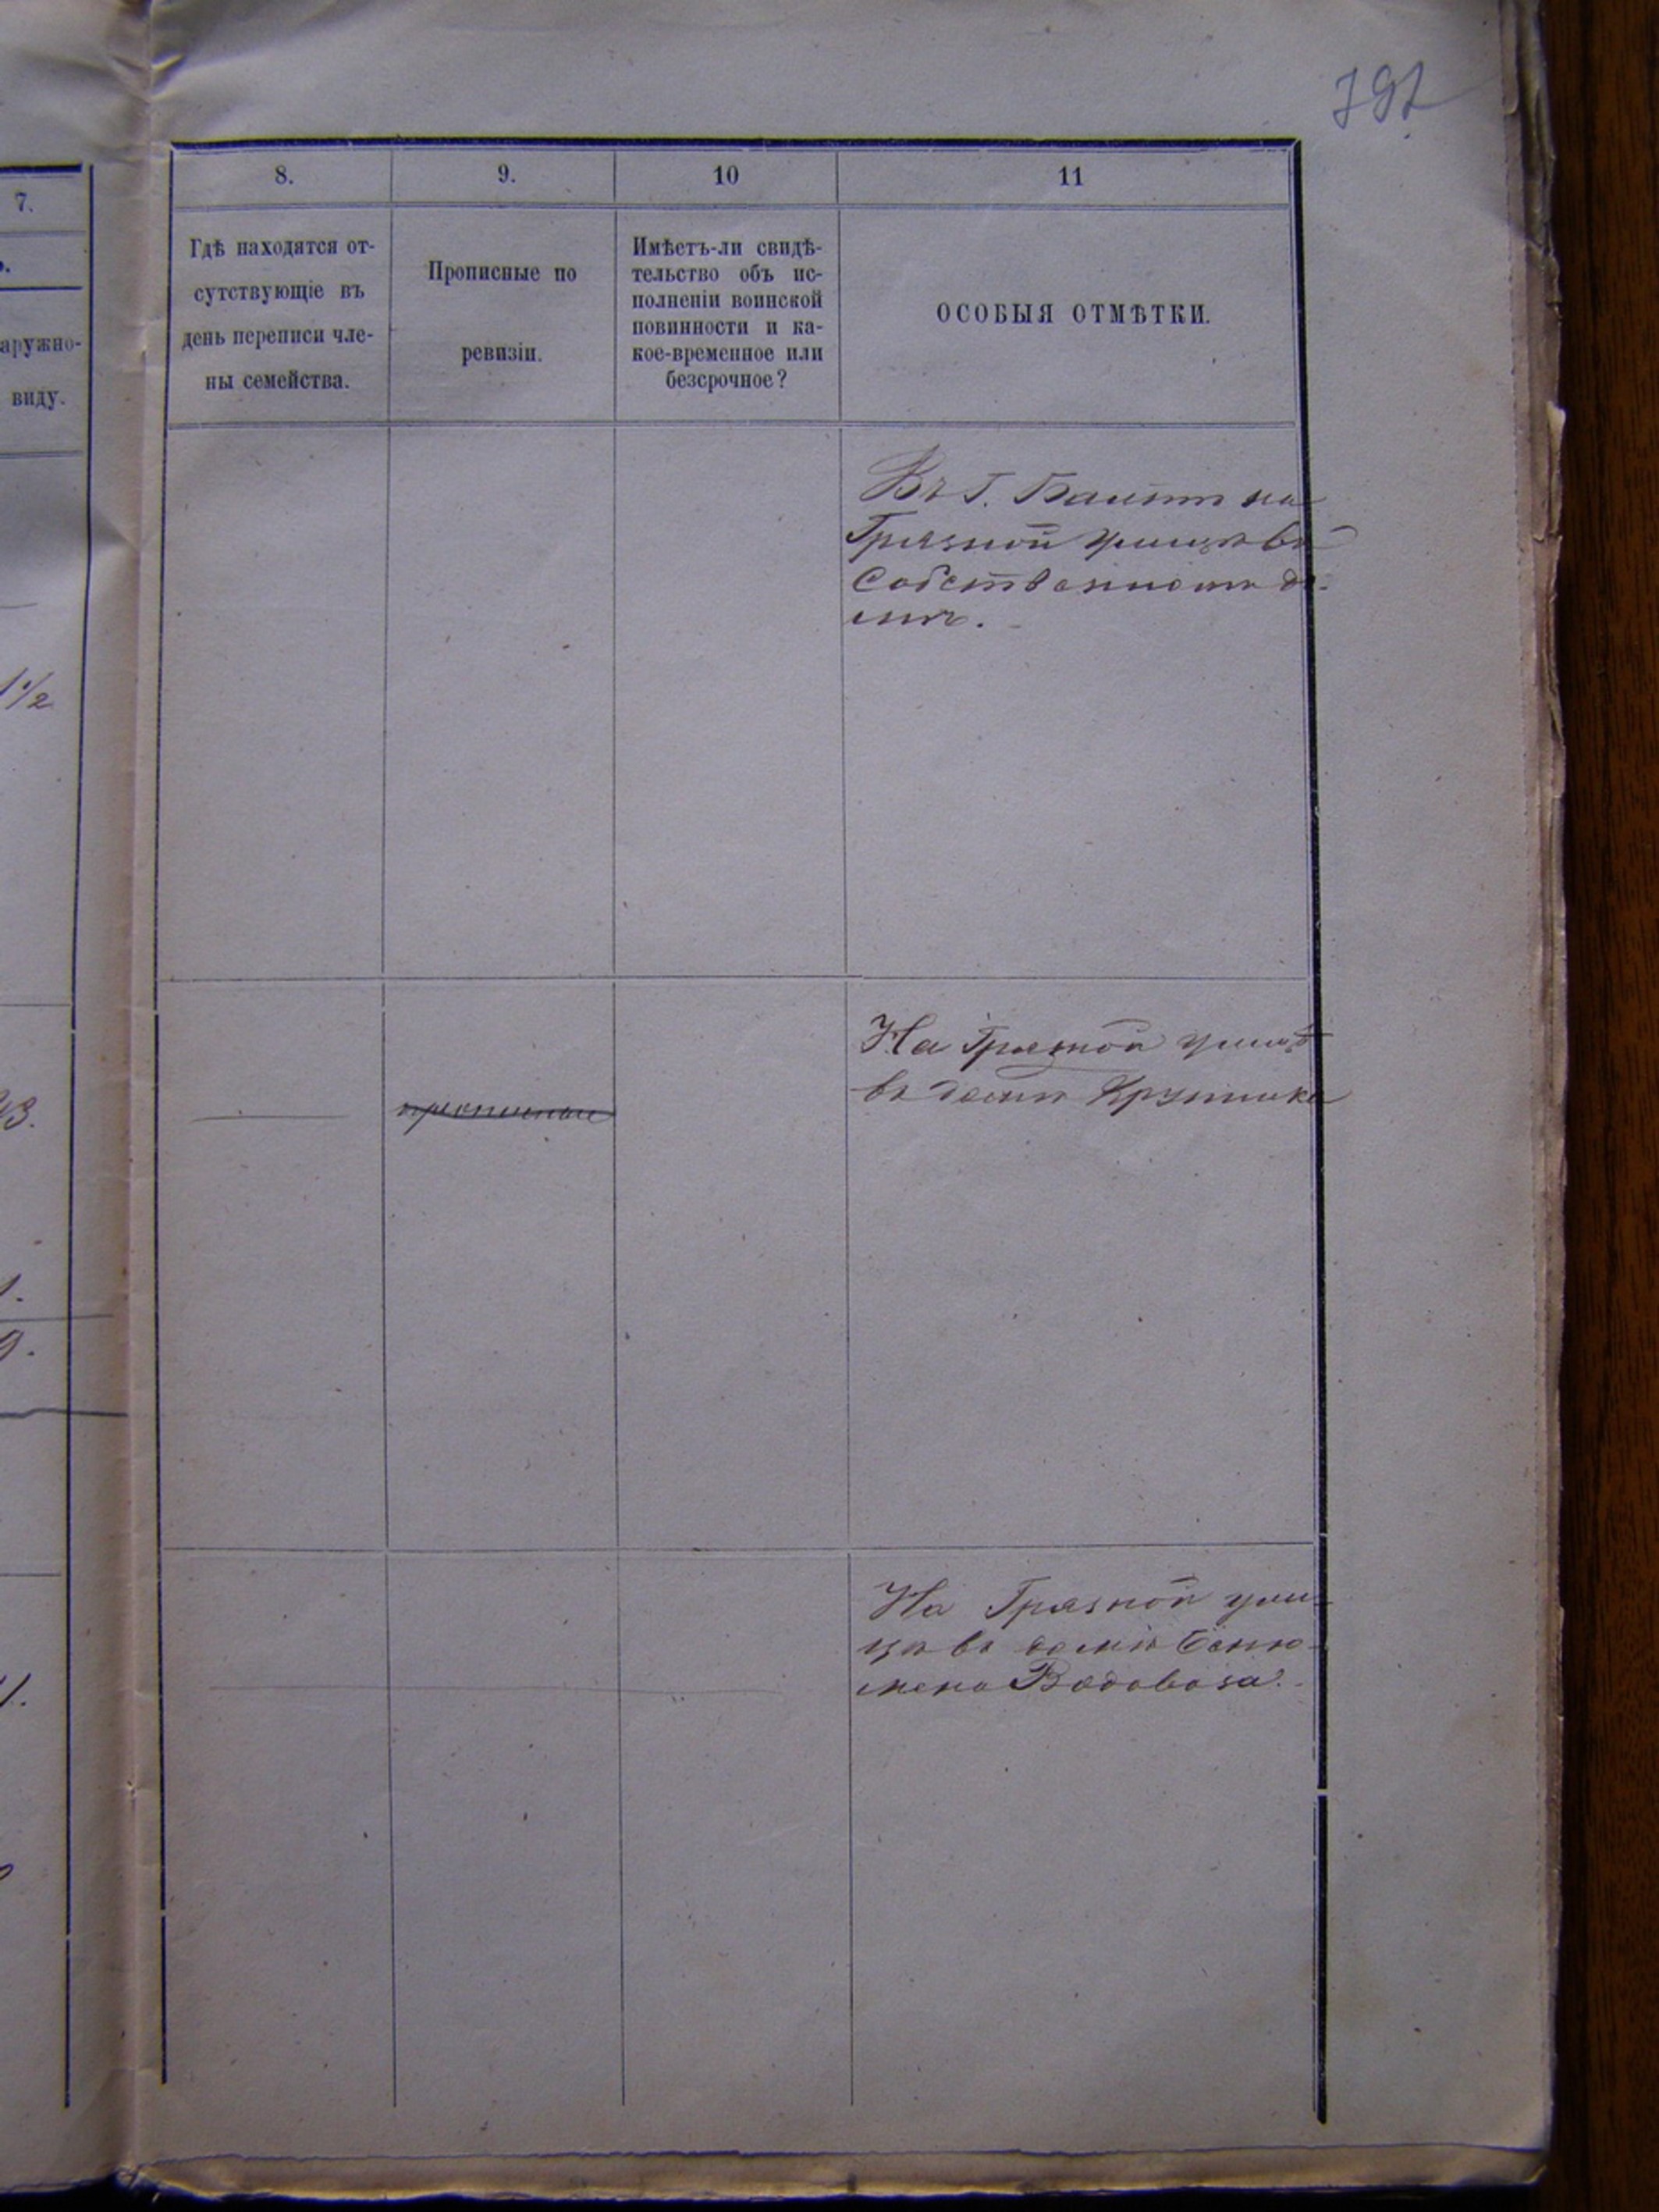 792
7.
8.
9.
10
11
аружно-
виду.
Гдѣ находятся от-
сутствующіе въ
день переписи чле-
ны семейства.
Прописные по
ревизіи.
Имѣетъ-ли свидѣ-
тельство объ ис-
полненіи воинской
повинности и ка-
кое-временное или
безсрочное?
ОСОБЫЯ ОТМѢТКИ.
Въ Г. Балтѣ на
Грязной улицѣ въ
собственномъ до-
мѣ.
1 1/2
На Грязной улицѣ
въ домѣ
прописные
3.
1.
9.
На Грязной ули-
цѣ въ домѣ Беню-
мена Водовоза.
1.